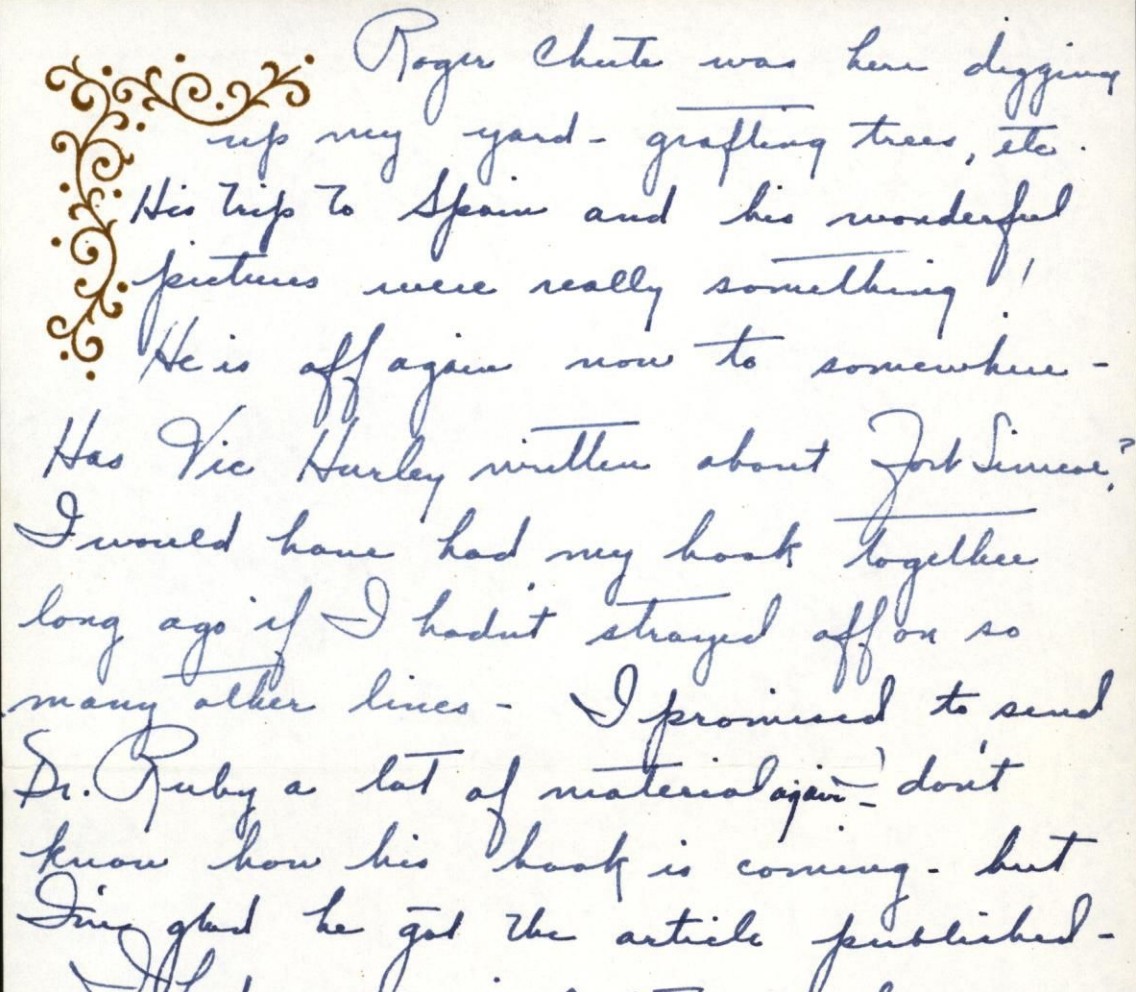 Roger Chute was here digging
up my yard - grafting trees, etc.
His trip to Spain and his wonderful
pictures were really something!
He is off again now to somewhere -
Has Vic Hurley written about Fort Simcoe?
I would have had my book together
long ago if I hadn't strayed off on so
many other lines - I promised to send
Dr. Ruby a lot of material again - don't
know how his book is coming - but
I'm glad he got the article published -